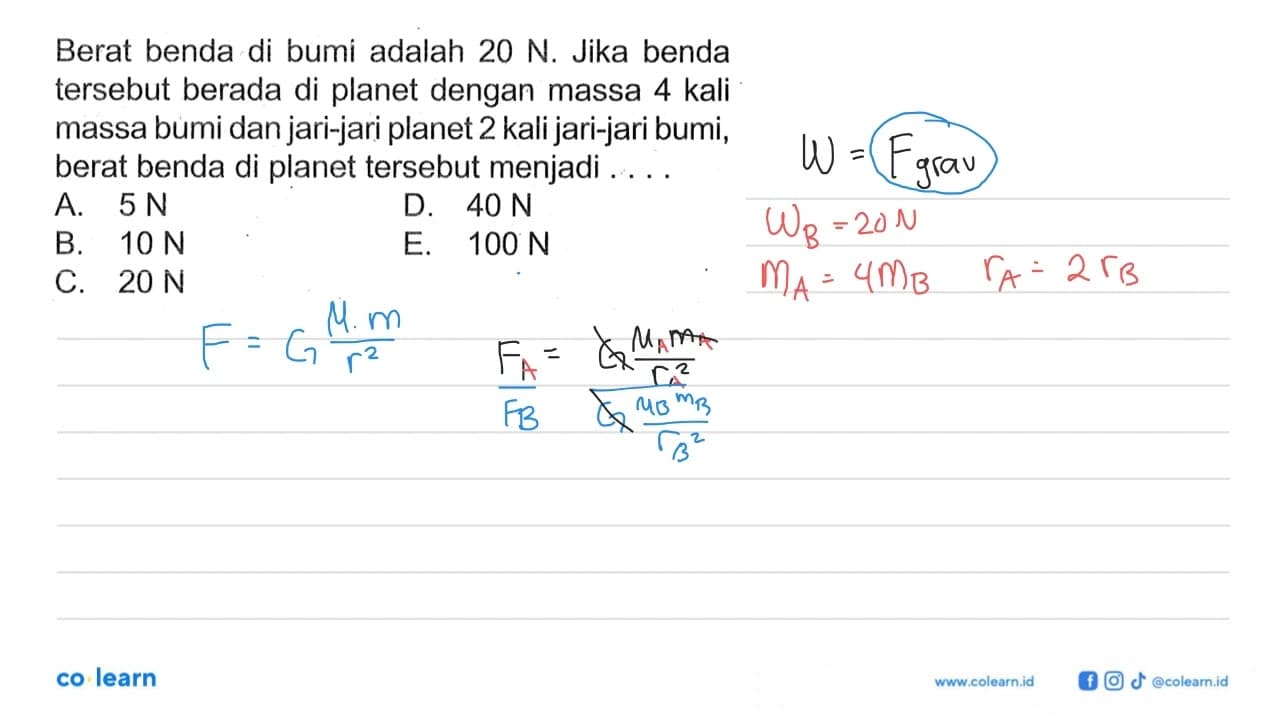 Berat benda di bumi adalah 20 N. Jika benda
tersebut berada di planet dengan massa 4 kali
massa bumi dan jari-jari planet 2 kali jari-jari bumi,
berat benda di planet tersebut menjadi . . . .
A. 5 N D. 40 N
B. 10 N E. 100 N
C. 20 N
W = F grav
W_B = 20 N
M_A = 4 M_B r_A = 2 r_B
F = G M.m / r²
F_A / F_B = G M_A m_A / r_A² / G M_B m_B / r_B²
co learn
www.colearn.id @colearn.id